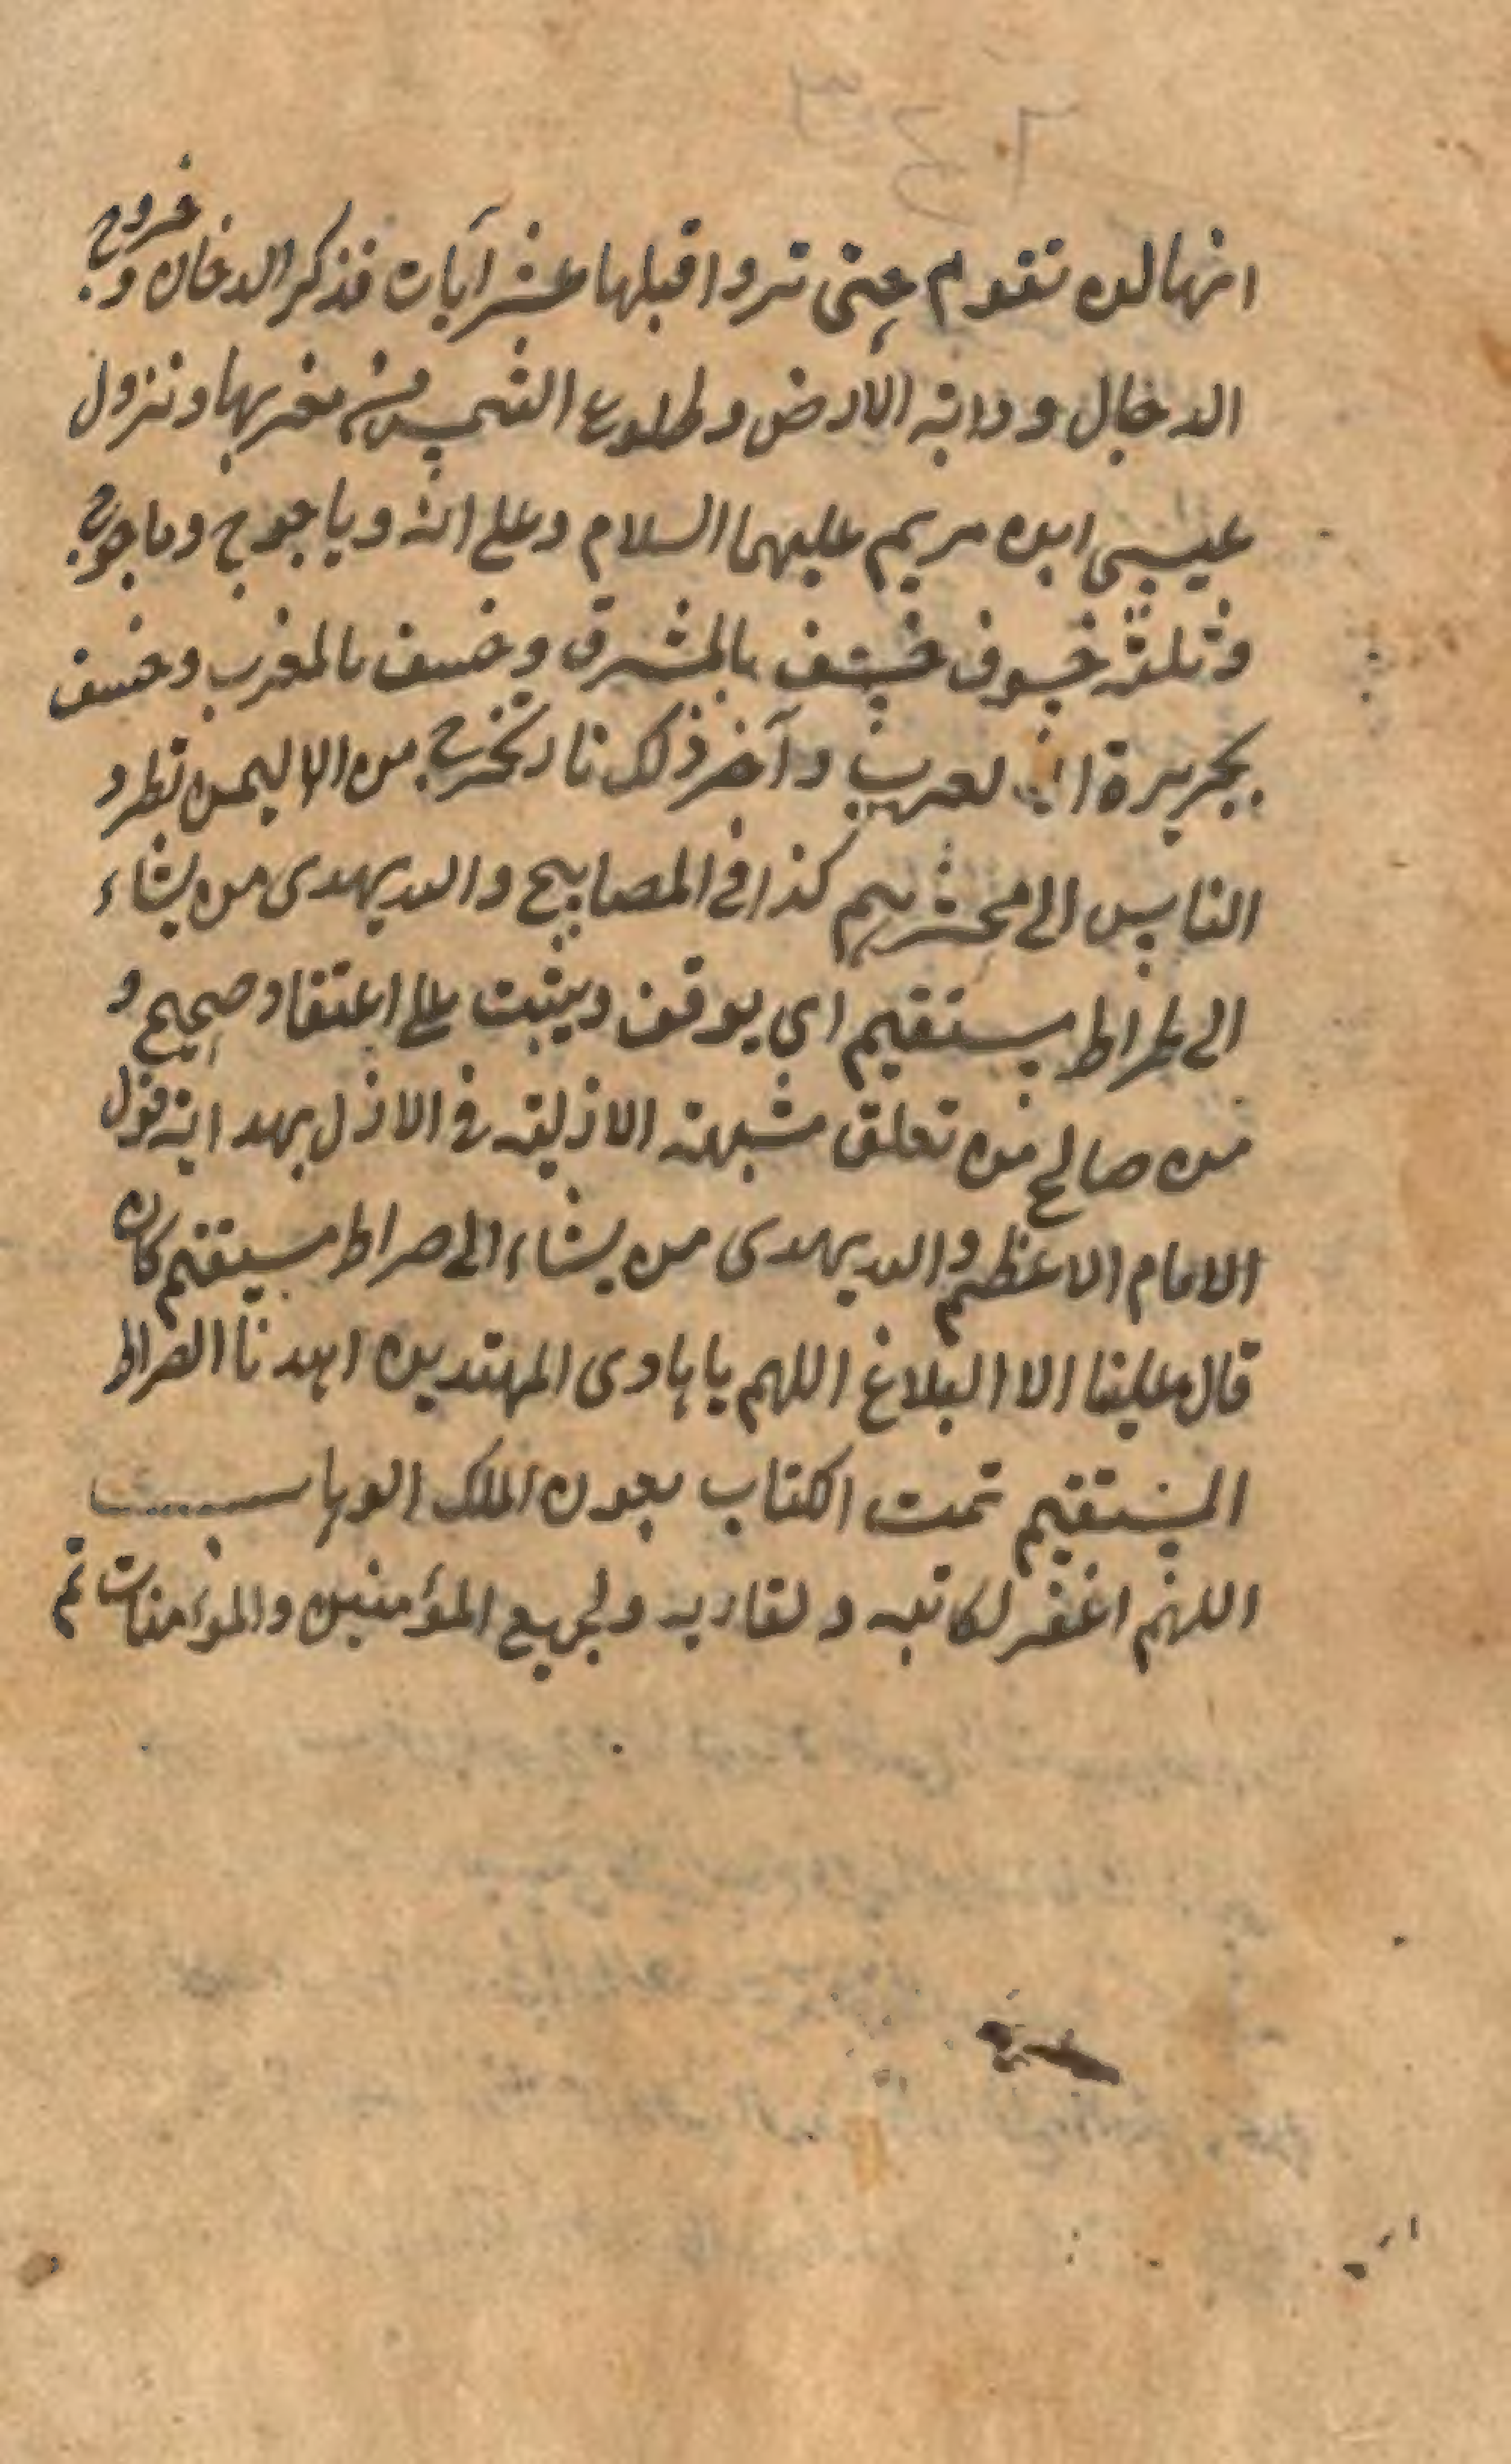 انها لن تقوم حتى تروا قبلها عشر آيات فذكر الدخان و خروج
الدجال و دابة الارض و طلوع الشمس من مغربها و نزول
عيسى ابن مريم عليهما السلام و ياجوج و ماجوج
و ثلثة خسوف خسف بالمشرق و خسف بالمغرب و خسف
بجزيرة العرب و آخر ذلك نار تخرج من اليمن تطرد
الناس الى محشرهم كذا في المصابيح و الله يهدى من يشاء
الى صراط مستقيم اي يوقف و يثبت على اعتقاد صحيح و
من صالح من تعلق مشيته الازلية في الازل بهدايته قول
الامام الاعظم و الله يهدى من يشاء الى صراط مستقيم كان
قال و علينا الا البلاغ اللهم يا هادى المهتدين اهدنا الصراط
المستقيم تمت الكتاب بعون الملك الوهاب
اللهم اغفر لكاتبه و لقاريه و لجميع المؤمنين و المؤمنات تم